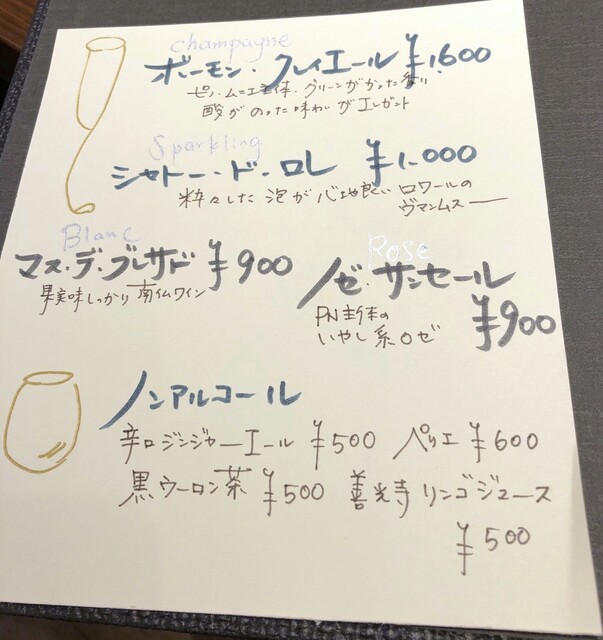 Champagne
ボーモン・クレイエール ¥1,600
ピノ・ムニエ主体・グリーンがかった香り
酸がのった味わいがエレガント
Sparkling
シャトー・ド・ロレ ¥1,000
粋々した泡が心地良いロワールの
ヴァンムスー
Blanc
マス・デ・ブレサド ¥900
果実味しっかり 南仏ワイン
Rose
ノゼ・サンセール
¥900
PN主体の
いやし系ロゼ
ノンアルコール
辛口ジンジャーエール ¥500 ペリエ ¥600
黒ウーロン茶 ¥500 善光寺リンゴジュース
¥500